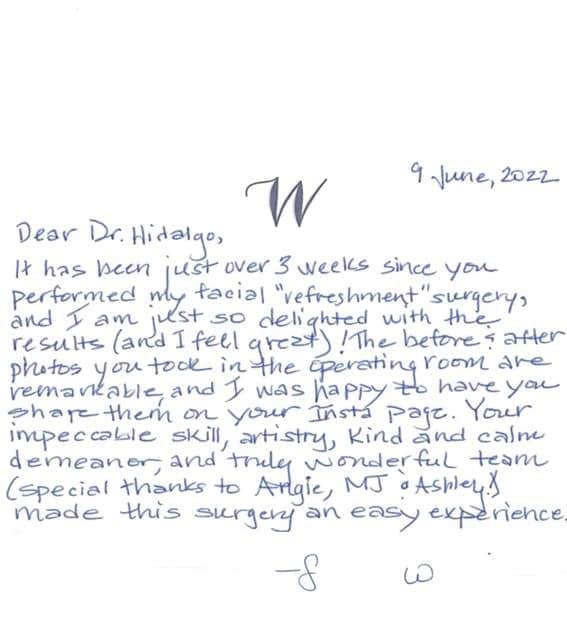 9 June, 2022
W
Dear Dr. Hidalgo,
It has been just over 3 weeks since you
performed my facial "refreshment" surgery,
and I am just so delighted with the
results (and I feel great)! The before & after
photos you took in the operating room are
remarkable, and I was happy to have you
share them on your Insta page. Your
impeccable skill, artistry, kind and calm
demeaner, and truly wonderful team
(special thanks to Angie, MJ & Ashley!)
made this surgery an easy experience.
-S W